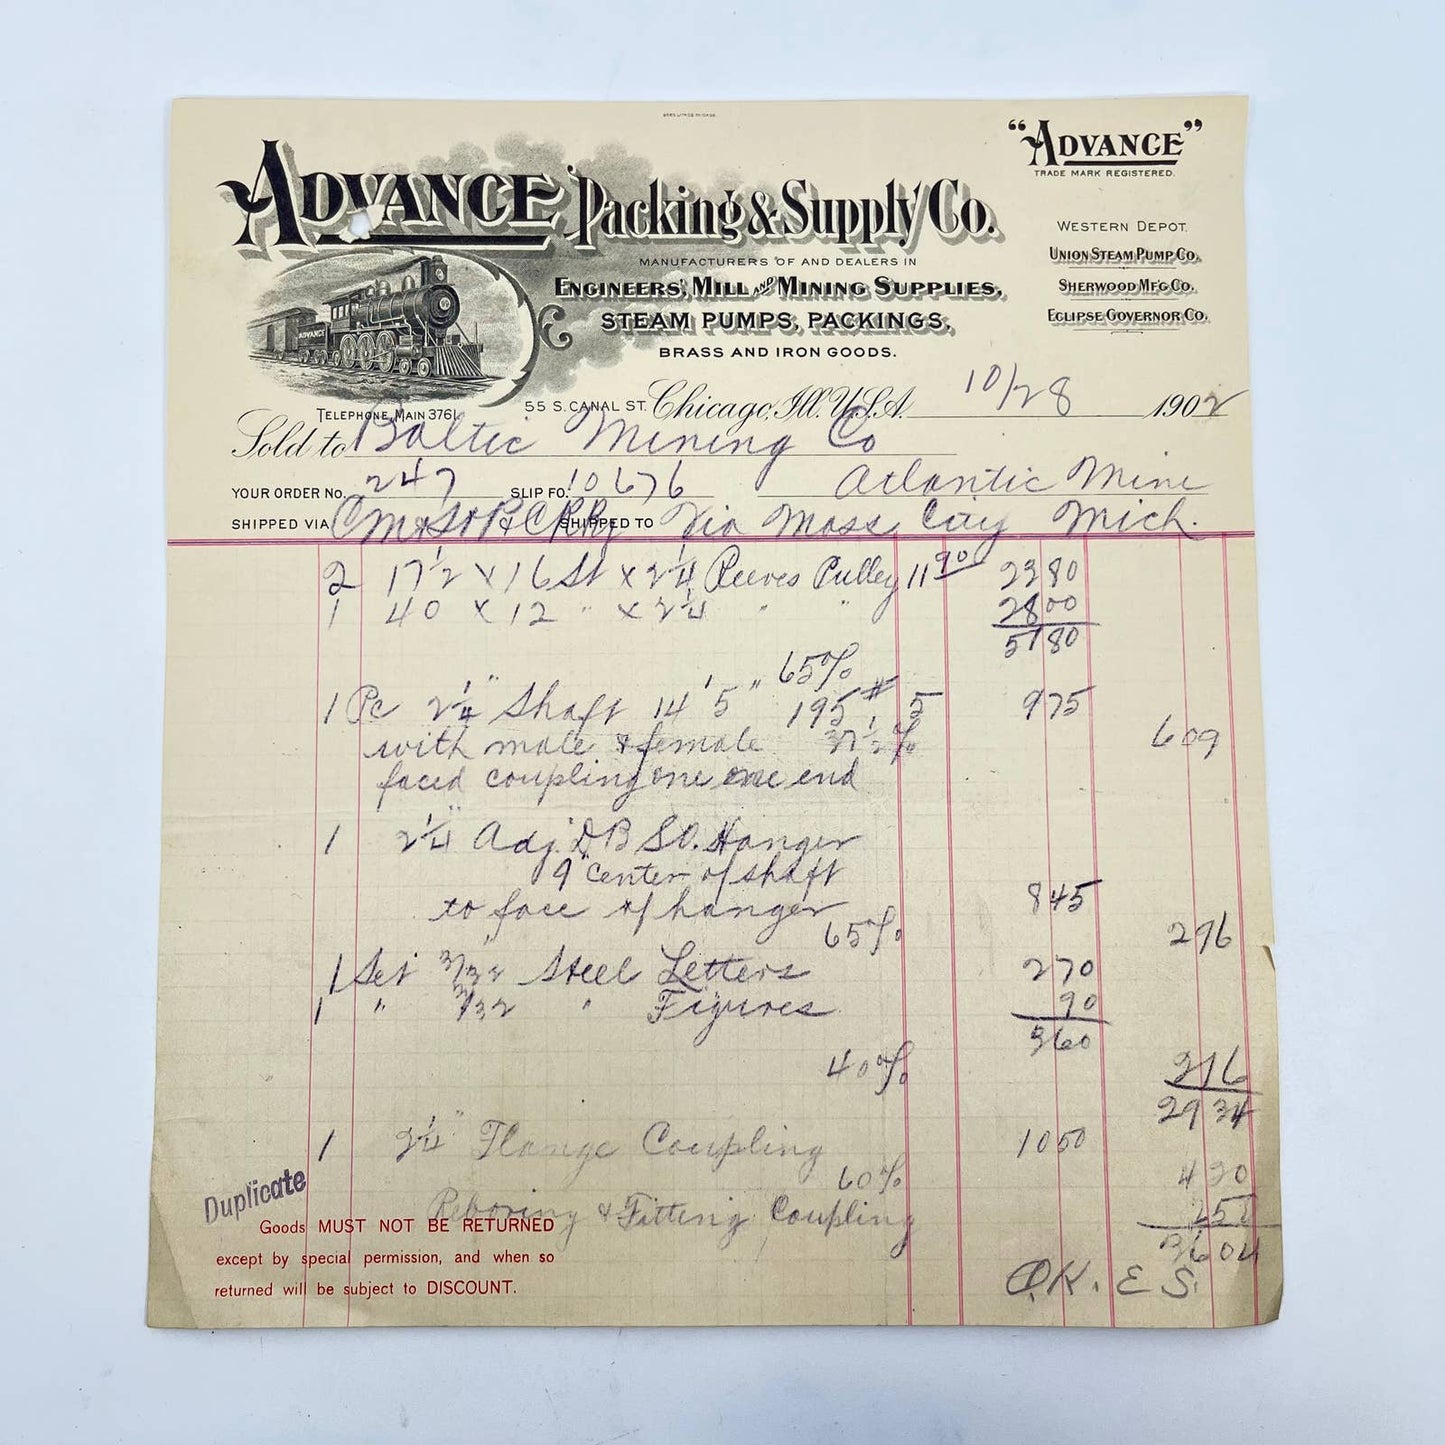 "ADVANCE"
TRADE MARK REGISTERED.
ADVANCE Packing & Supply Co.
WESTERN DEPOT.
UNION STEAM PUMP CO.
SHERWOOD M'F'G CO.
ECLIPSE GOVERNOR CO.
MANUFACTURERS OF AND DEALERS IN
ENGINEERS', MILL AND MINING SUPPLIES,
STEAM PUMPS, PACKINGS,
BRASS AND IRON GOODS.
ADVANCE
TELEPHONE, MAIN 3761. 55 S. CANAL ST. Chicago, Ill. U.S.A. 10/28 1902
Sold to Baltic Mining Co
YOUR ORDER NO. 247 SLIP FO. 10676 Atlantic Mine
SHIPPED VIA CM & St P & C RRy SHIPPED TO Via Mass City Mich.
2 17 1/2 x 16 St x 2 1/4 Reeves Pulley 11 90 23 80
1 40 x 12 " x 2 1/4 " " 28 00
51 80
65%
1 Pc 2 1/4" Shaft 14' 5" 195# 5 9 75
with male & female 37 1/2 % 6 09
faced coupling one one end
1 2 1/4" Adj. D B S O. Hanger
9" center of shaft
to face of hanger 8 45
65% 2 96
1 Set 3/32" Steel Letters 2 70
1 " 3/32 " Figures 90
3 60
40% 2 16
29 34
1 2 1/4" Flange Coupling 10 50
60% 4 20
Reboring & Fitting Coupling 2 50
36 04
O.K. E S.
Duplicate
Goods MUST NOT BE RETURNED
except by special permission, and when so
returned will be subject to DISCOUNT.